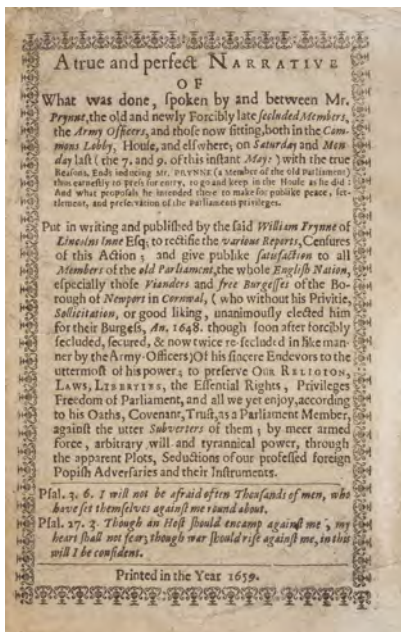 A true and perfect NARRATIVE
OF
What was done, spoken by and between Mr.
Prynne, the old and newly Forcibly late secluded Members,
the Army Officers, and those now sitting, both in the Com-
mons Lobby, House, and elswhere; on Saturday and Mon
day last (the 7. and 9. of this instant May:) with the true
Reasons, Ends inducing Mr. PRYNNE (a Member of the old Parliament)
thus earnestly to press for entry, to go and keep in the House as he did:
And what proposals he intended there to make for publike peace, set-
tlement, and preservation of the Parliaments privileges.
Put in writing and published by the said William Prynne of
Lincolns Inne Esq; to rectifie the various Reports, Censures
of this Action; and give publike satisfaction to all
Members of the old Parliament, the whole English Nation,
especially those Vianders and free Burgesses of the Bo-
rough of Newport in Cornwal, (who without his Privitie,
Sollicitation, or good liking, unanimously elected him
for their Burgess, An. 1648. though soon after forcibly
secluded, secured, & now twice re-secluded in like man-
ner by the Army-Officers) Of his sincere Endevors to the
uttermost of his power; to preserve OUR RELIGION,
LAWS, LIBERTIES, the Essential Rights, Privileges
Freedom of Parliament, and all we yet enjoy, according
to his Oaths, Covenant, Trust, as a Parliament Member,
against the utter Subverters of them; by meer armed
force, arbitrary will and tyrannical power, through
the apparent Plots, Seductions of our professed foreign
Popish Adversaries and their Instruments.
Psal. 3. 6. I will not be afraid of ten Thousands of men, who
have set themselves against me round about.
Psal. 27. 3. Though an Host should encamp against me, my
heart shall not fear; though war should rise against me, in this
will I be confident.
Printed in the Year 1659.